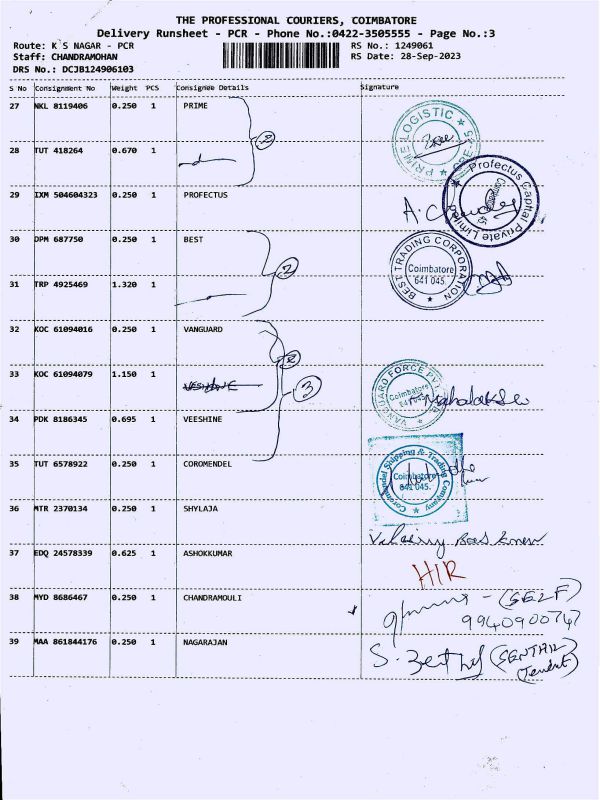 THE PROFESSIONAL COURIERS, COIMBATORE
Delivery Runsheet - PCR - Phone No.:0422-3505555 - Page No.:3
Route: K S NAGAR - PCR RS No.: 1249061
Staff: CHANDRAMOHAN RS Date: 28-Sep-2023
DRS No.: DCJB124906103
S No Consignment No Weight PCS Consignee Details Signature
27 NKL 8119406 0.250 1 PRIME
PRIME LOGISTIC
28 TUT 418264 0.670 1
29 IXM 504604323 0.250 1 PROFECTUS
Profectus Capital Private Limited
30 DPM 687750 0.250 1 BEST
2
BEST TRADING CORPORATION
Coimbatore
641 045.
31 TRP 4925469 1.320 1
32 KOC 61094016 0.250 1 VANGUARD
33 KOC 61094079 1.150 1
3
VANGUARD FORCE
Coimbatore
641 045
34 PDK 8186345 0.695 1 VEESHINE
35 TUT 6578922 0.250 1 COROMENDEL
Coromendel Shipping & Trading Company
Coimbatore
641 045.
36 MTR 2370134 0.250 1 SHYLAJA
37 EDQ 24578339 0.625 1 ASHOKKUMAR
HIR
38 MYD 8686467 0.250 1 CHANDRAMOULI
(SELF)
9940900747
39 MAA 861844176 0.250 1 NAGARAJAN
S.